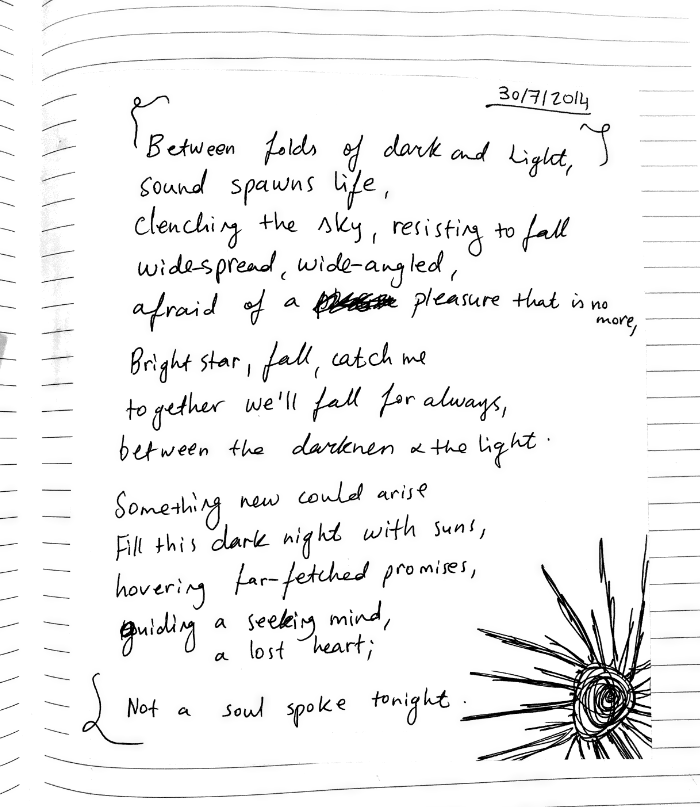 30/7/2014
Between folds of dark and Light,
sound spawns life,
clenching the sky, resisting to fall
wide-spread, wide-angled,
afraid of a pleasure that is no
more,
Bright star, fall, catch me
together we'll fall for always,
between the darknen & the light.
Something new could arise
Fill this dark night with suns,
hovering far-fetched promises,
guiding a seeking mind,
a lost heart;
Not a soul spoke tonight.